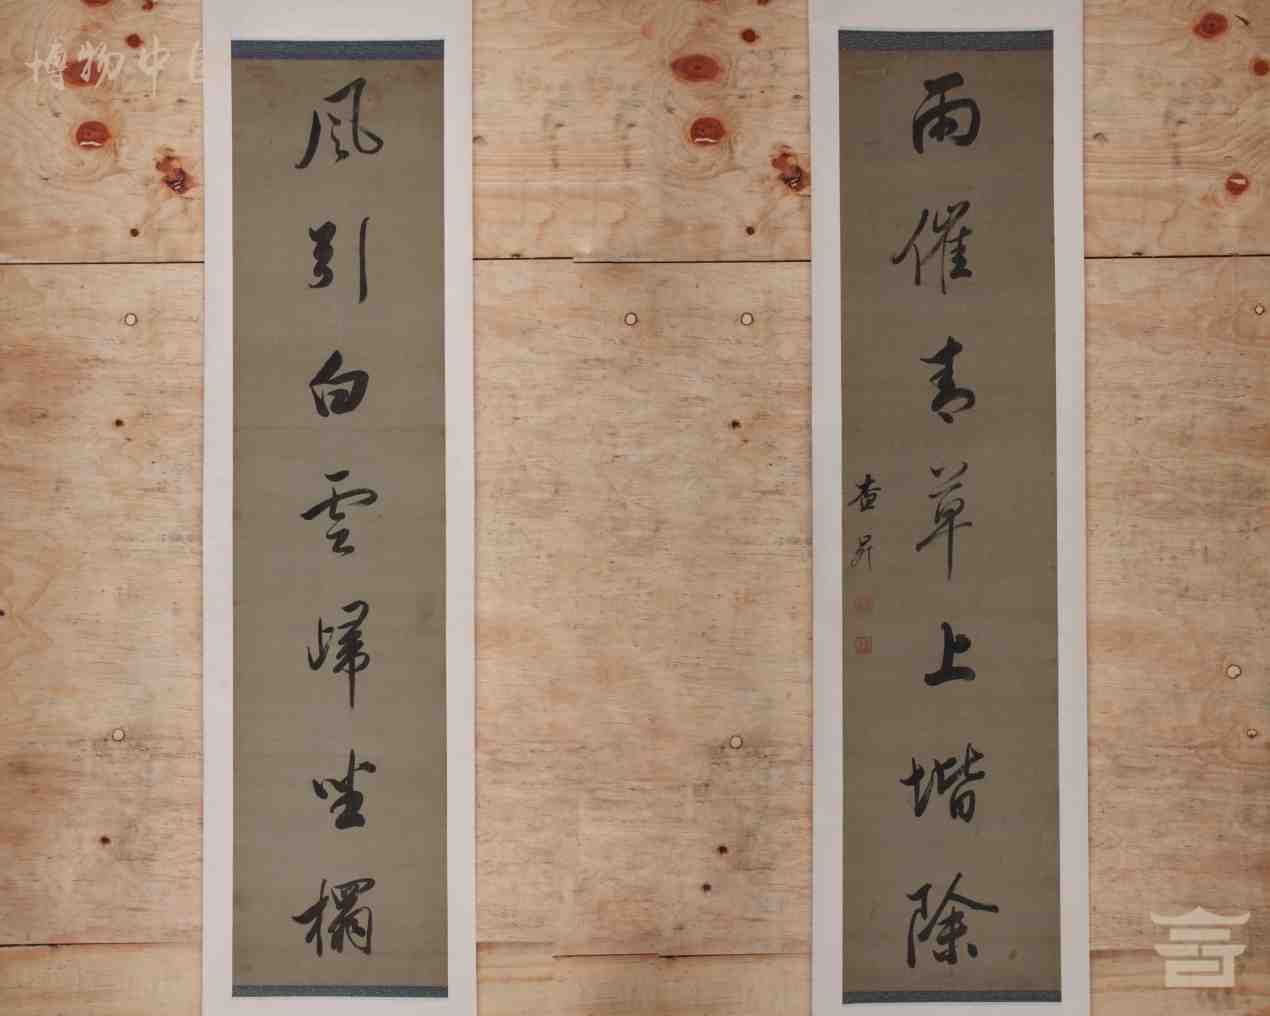 博物中
風引白雲歸坐榻
雨催青草上堦除
查昇